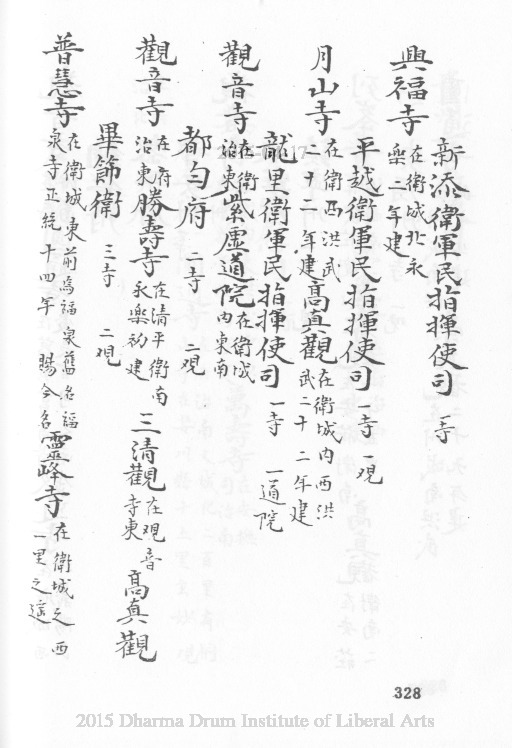 新添衛軍民指揮使司 一寺
興福寺 在衛城北永樂二年建
平越衛軍民指揮使司 一寺 一觀
月山寺 在衛西洪武二十二年建 高真觀 在衛城內西洪武二十二年建
龍里衛軍民指揮使司 一寺 一道院
觀音寺 在衛治東 紫虛道院 在衛城內東南
都勻府 二寺 二觀
觀音寺 在府治東 勝壽寺 在清平衛南永樂初建 三清觀 在觀音寺東 高真觀
畢節衛 三寺 二觀
普慧寺 在衛城東前為福泉舊名福泉寺正統十四年賜今名 靈峰寺 在衛城之西一里之遠
328
2015 Dharma Drum Institute of Liberal Arts